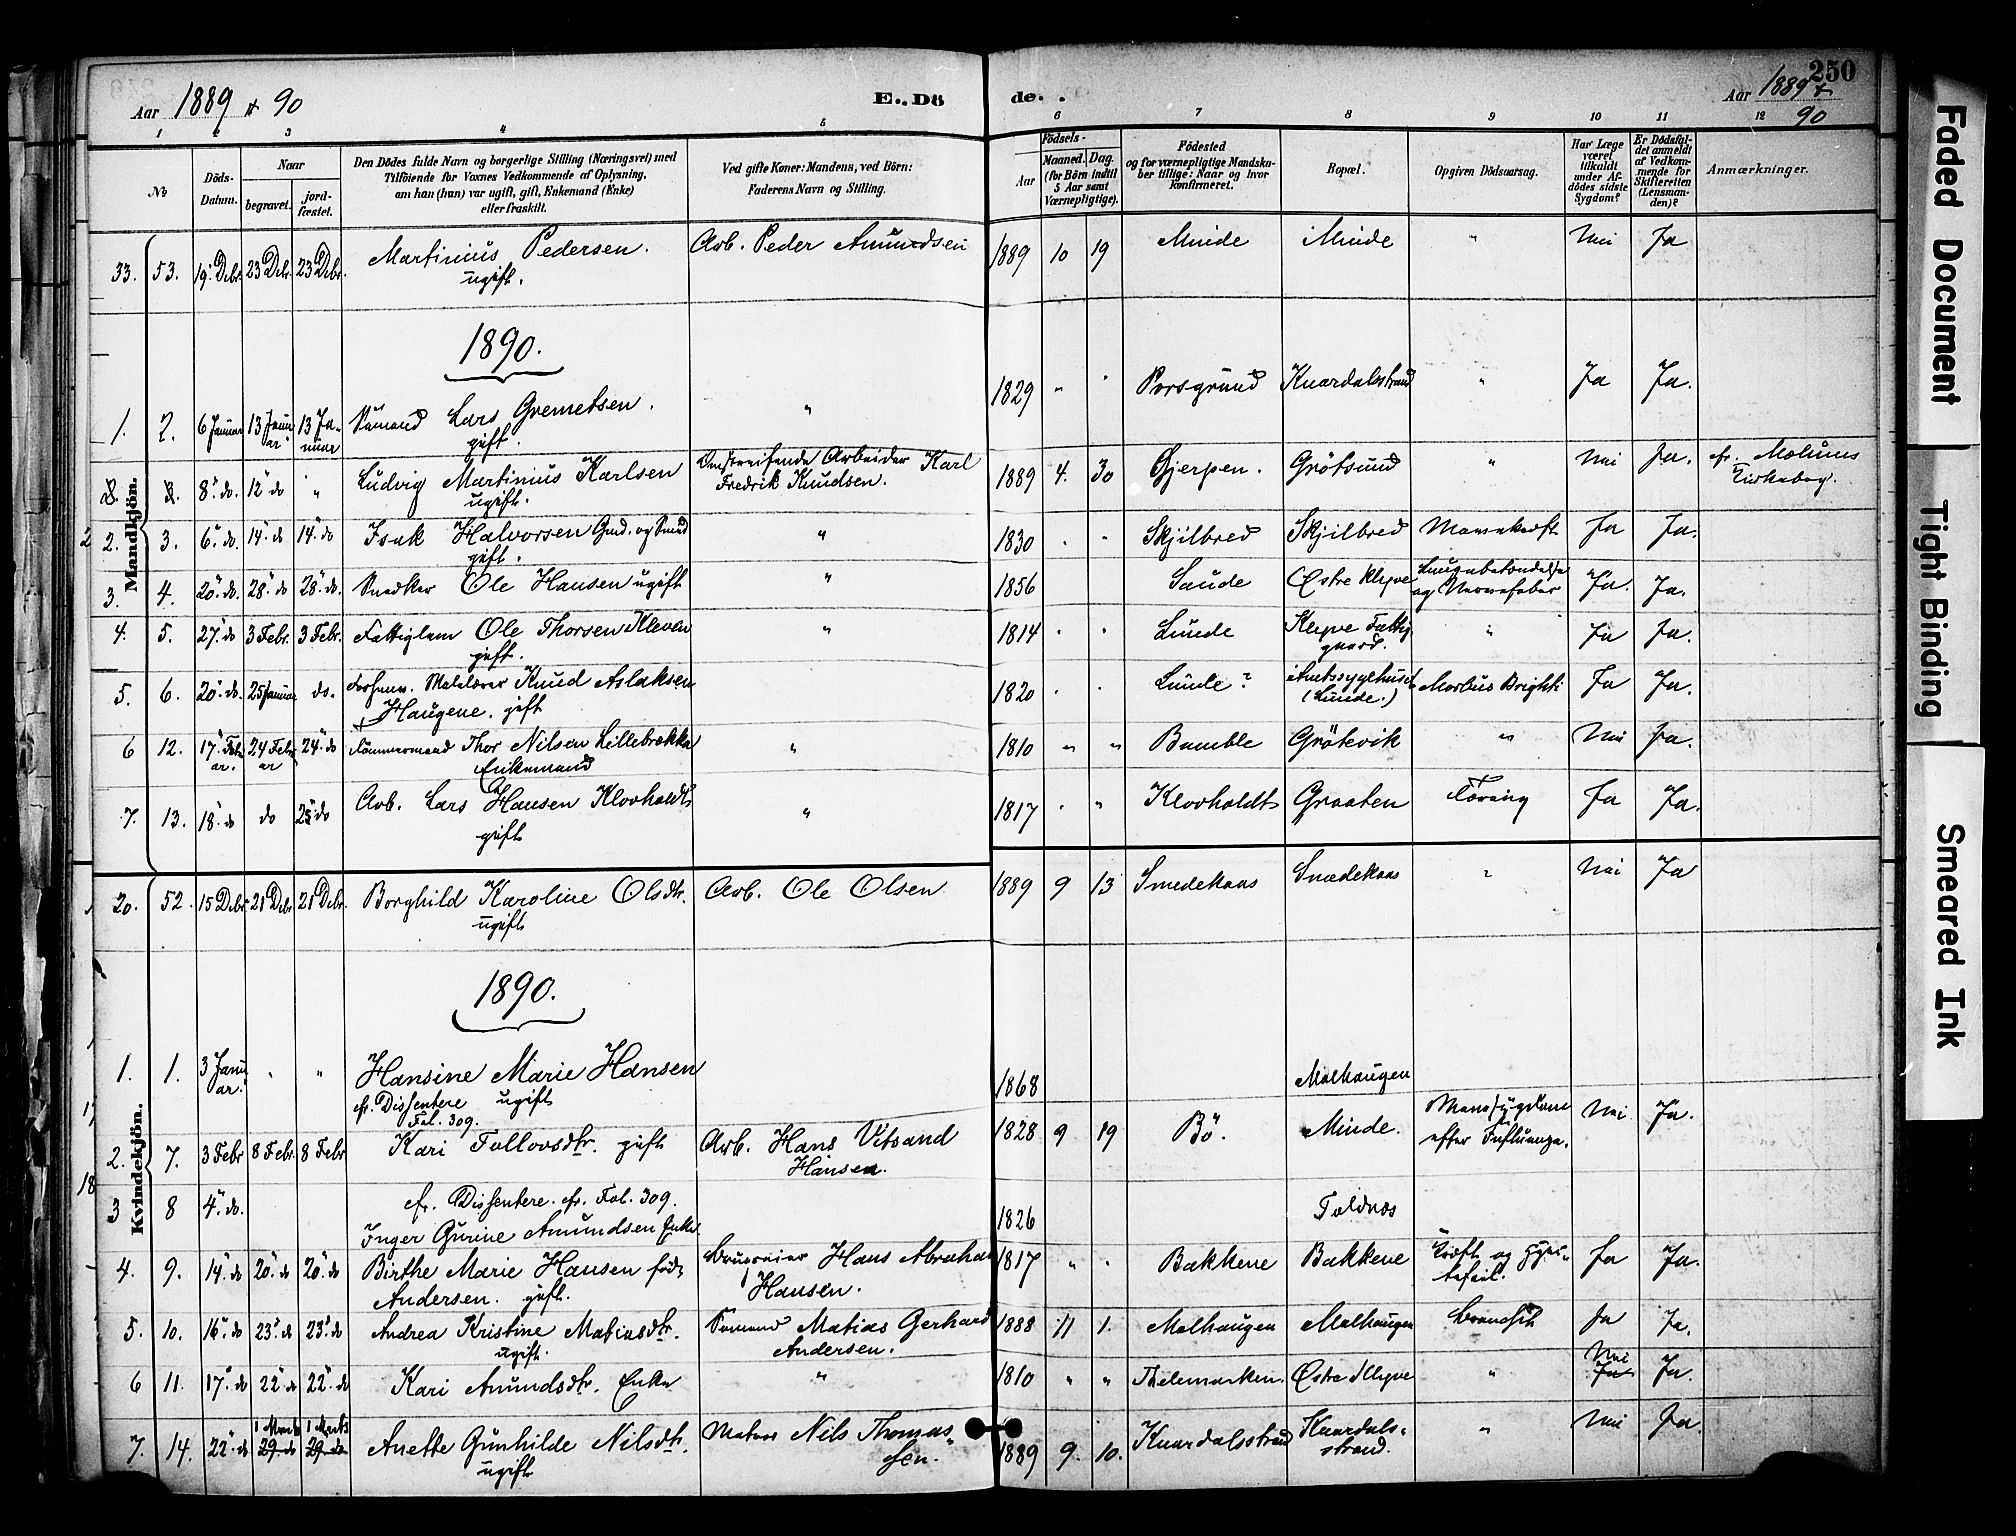 Aar 1889 & 90
E.. Dö
de. .
Aar 1889 &
90
250
1 2 3 4 5
6 7 8 9 10 11 12
No
Döds-
Datum.
Naar
begravet.
jord-
fæstet.
Den Dödes fulde Navn og borgerlige Stilling (Næringsvei) med
Tilföiende for Voxnes Vedkommende af Oplysning,
om han (hun) var ugift, gift, Enkemand (Enke)
eller fraskilt.
Ved gifte Koner: Mandens, ved Börn:
Faderens Navn og Stilling.
Födsels-
Aar
Maaned.
Dag.
(for Börn indtil
5 Aar samt
Værnepligtige).
Födested
og for værnepligtige Mandska-
ber tillige: Naar og hvor
konfirmeret.
Bopæl.
Opgiven Dödsaarsag.
Har Læge
været
tilkaldt
under Af-
dödes sidste
Sygdom?
Er Dödsfal-
det anmeldt
af Vedkom-
mende for
Skifteretten
(Lensman-
den)?
Anmærkninger.
Mandkjön.
33. 53. 19 Debr 23 Debr 23 Debr. Martinius Pedersen. Arb. Peder Amundsen 1889 10 19 Minde Minde " Nei Ja
ugift.
1890.
1. 2. 6 Januar 13 Janu 13 Ja- Sömand Lars Gremetsen. " 1829 " " Porsgrund Knardalsstrand " Ja Ja.
ar nuar gift.
8. 8. 8 do. 12 do " Ludvig Martinius Karlsen Omstreifende Arbeider Karl 1889 4. 30 Gjerpen. Grötsund " Nei Ja. cfr. Molums
ugift. Fredrik Knudsen. Kirkebog.
2. 3. 6 do. 14 do 14 do. Isak Halvorsen Gmd. og Smed " 1830 " " Skjilbred Skjilbred Mavekræft Ja Ja.
gift.
3. 4. 20 do. 28 do 28 do. Snedker Ole Hansen ugift " 1856 Saude Østre Klyve Lungebetændelse Ja. Ja.
og Nervefeber
4. 5. 27 do 3 Febr. 3 Febr. Fattiglem Ole Thorsen Kleven " 1814 " " Lunde Klyve Fattig " Ja Ja.
gift. gaard.
5. 6. 20 do. 25 Januar do. Forhenv. Knud Aslaksen 1820 " " Lunde? Amtssygehuset Morbus Brighti Ja Ja.
Haugene. gift (Lunde.)
6 12. 17 Febr 24 Febr 24 do Tömmermand Thor Nilsen Lillebrække " 1810 " " Bamble Grötevik " Nei Ja.
ar. ar Enkemand
7. 13. 18 do do 25 do Arb. Lars Hansen Klovholdt " 1817 " " Klovholdt Graaten Tæring Ja Ja.
gift
Kvindekjön.
20. 52. 15 Debr 21 Debr 21 Debr. Borghild Karoline Olsdtr. Arb. Ole Olsen 1889 9 13 Smedekaas Smedekaas " Nei Ja
ugift
1890.
1. 1. 3 Janu " " Hansine Marie Hansen 1868 Malhaugen
ar. cfr. Dissentere ugift
Fol. 309.
2. 7. 3 Febr 8 Febr. 8 Febr Kari Tollovsdtr. gift Arb. Hans Vitsand 1828 9 19 Bö. Minde. Mavesygdom Nei Ja.
Hansen. efter Influenza.
3 8 4 do. cfr. Dissentere. cfr. Fol. 309. 1826 Toldnæs
Inger Gurine Amundsen Enke
4. 9. 14 do 20 do 20 do. Birthe Marie Hansen föd Brugseier Hans Abraham 1817 " " Bakkene Bakkene Ja Ja.
Andersen. gift. Hansen.
5. 10. 16 do 23 do 23 do Andrea Kristine Matiasdtr. Sömand Matias Gerhard 1888 11 1. Malhaugen Malhaugen Ja Ja.
ugift. Andersen.
6 11. 17 do 22 do 22 do Kari Amundsdtr. Enke " 1810 " " Thelemarken. Østre Klyve " Nei Ja Ja.
7. 14. 22 do 1 Marts 29 do 1 Marts 29 do Anette Gunhilde Nilsdtr. Matros Nils Thomas- 1889 9. 10. Knardalsstrand Knardals- " Nei Ja.
ugift sen. strand.
Faded Document
Tight Binding
Smeared Ink